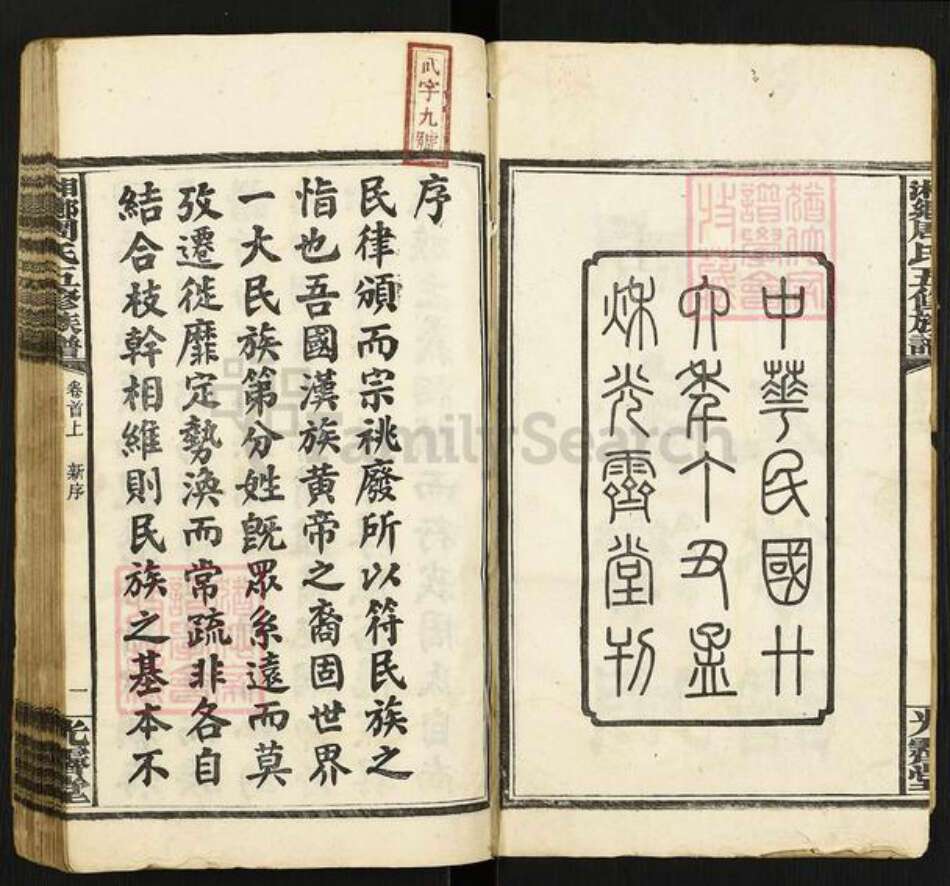 湘鄉周氏五修族譜
光霽堂
中華民國廿
六年丁丑孟
秌光霽堂刊
字九號
序
民律頒而宗祧廢所以符民族之
恉也吾國漢族黃帝之裔固世界
一大民族第分姓旣眾系遠而莫
攷遷徙靡定勢渙而常疏非各自
結合枝幹相維則民族之基本不
湘鄉周氏五修族譜
卷首上 新序
一
光霽堂
FamilySearch